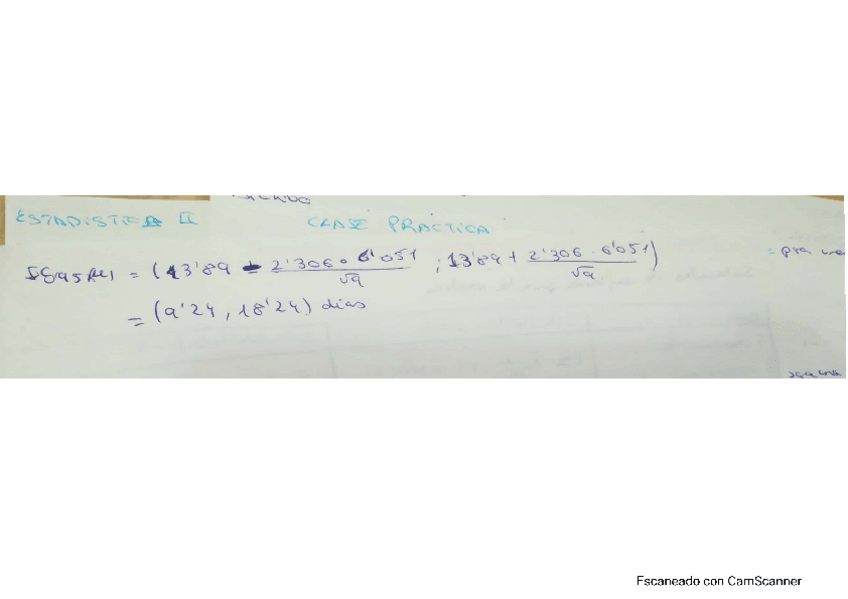 ESTADISTICA II CLASE PRACTICA
= (13'89 - 2'306 · 6'051 / √9 ; 13'89 + 2'306 · 6'051 / √9)
= (9'24, 18'24) dias
Escaneado con CamScanner